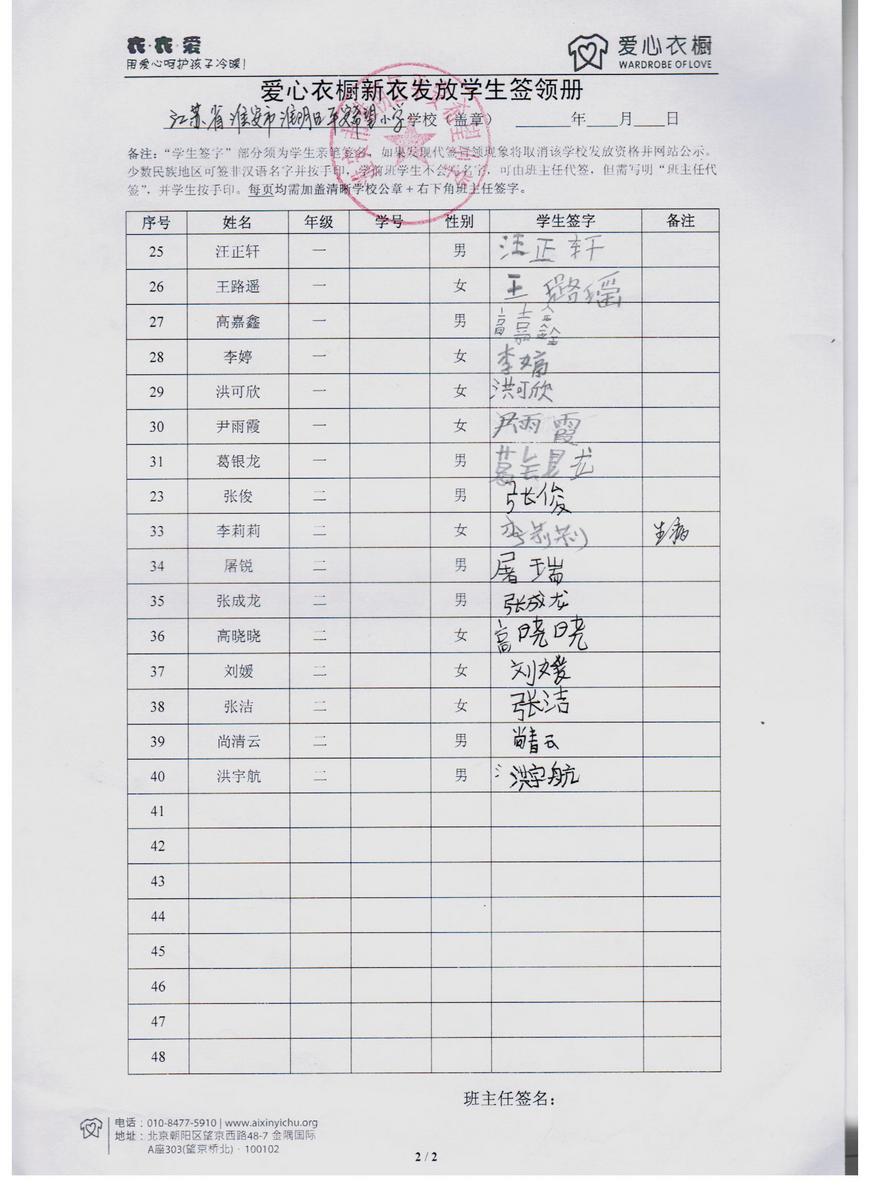 衣·衣·爱
用爱心呵护孩子冷暖!
爱心衣橱
WARDROBE OF LOVE
爱心衣橱新衣发放学生签领册
江苏省淮安市淮阴区 希望小学学校（盖章） 年 月 日
备注："学生签字"部分须为学生亲笔签名，如果发现代签冒领现象将取消该学校发放资格并网站公示。
少数民族地区可签非汉语名字并按手印，学前班学生不会写名字，可由班主任代签，但需写明"班主任代
签"，并学生按手印。每页均需加盖清晰学校公章+右下角班主任签字。
序号 姓名 年级 学号 性别 学生签字 备注
25 汪正轩 一 男 汪正轩
26 王路遥 一 女 王璐瑶
27 高嘉鑫 一 男 高嘉鑫
28 李婷 一 女 李婷
29 洪可欣 一 女 洪可欣
30 尹雨霞 一 女 尹雨霞
31 葛银龙 一 男 葛 龙
23 张俊 二 男 张俊
33 李莉莉 二 女 李莉莉 生病
34 屠锐 二 男 屠瑞
35 张成龙 二 男 张成龙
36 高晓晓 二 女 高晓晓
37 刘媛 二 女 刘媛
38 张洁 二 女 张洁
39 尚清云 二 男 尚青云
40 洪宇航 二 男 洪宇航
41
42
43
44
45
46
47
48
班主任签名：
电话：010-8477-5910 | www.aixinyichu.org
地址：北京朝阳区望京西路48-7 金隅国际
A座303(望京桥北)·100102
2 / 2